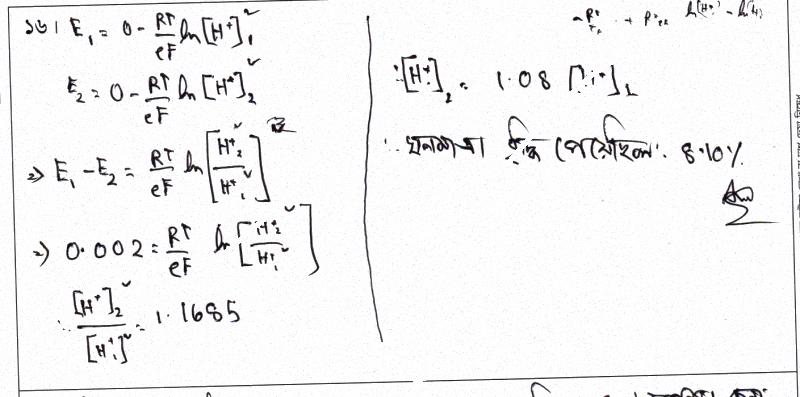 ১৬। E₁ = 0 - RT/eF ln [H⁺]₁²
E₂ = 0 - RT/eF ln [H⁺]₂²
⇒ E₁ - E₂ = RT/eF ln [H⁺₂² / H⁺₁²]
⇒ 0.002 = RT/eF ln [H⁺₂² / H⁺₁²]
∴ [H⁺]₂² / [H⁺₁]² = 1.1685
∴ [H⁺]₂ = 1.08 [H⁺]₁
∴ ঘনমাত্রা বৃদ্ধি পেয়েছিল 8.10%
Ans